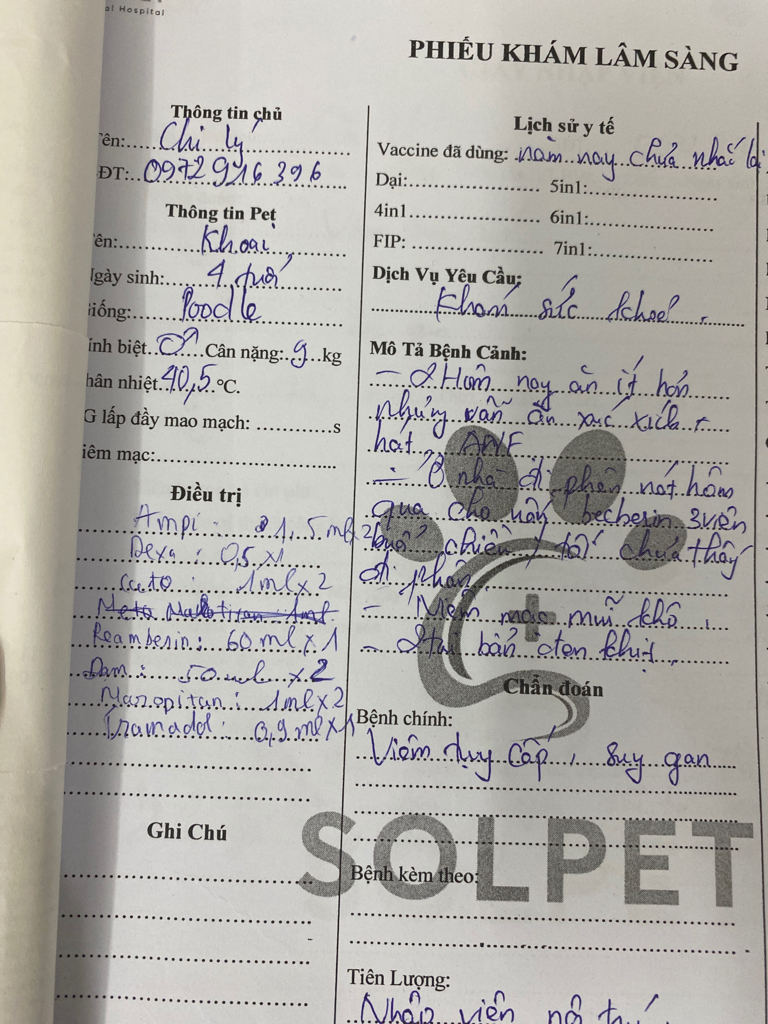 al Hospital
PHIẾU KHÁM LÂM SÀNG
Thông tin chủ
ên: Chị Lý
ĐT: 0972 916 396
Thông tin Pet
ên: Khoai
Ngày sinh: 4 tuổi
iống: Poodle
ính biệt ♂ Cân nặng: 9 kg
hân nhiệt 40,5 °C.
G lấp đầy mao mạch: ............s
iêm mạc:
Điều trị
Ampi : 1,5ml x2
Dexa : 0,5 x1
cato : 1ml x 2
Reamberin : 60 ml x 1
Dam : 50 ml x 2
Maropitan : 1ml x 2
Tramadol : 0,9 ml x 1
Ghi Chú
Lịch sử y tế
Vaccine đã dùng: năm nay chưa nhắc lại
Dại: 5in1:
4in1 6in1:
FIP: 7in1:
Dịch Vụ Yêu Cầu:
Khám sức khoẻ
Mô Tả Bệnh Cảnh:
- 2 Hôm nay ăn ít hơn
nhưng vẫn ăn xúc xích +
hạt, ANF
- Ở nhà đi phân nát hôm
qua cho uống becberin 3 viên
buổi chiều, tối chưa thấy
đi phân
- Niêm mạc mũi khô,
- 2 tai bẩn đen khịt,
Chẩn đoán
Bệnh chính:
Viêm tụy cấp, suy gan
SOLPET
Bệnh kèm theo:
Tiên Lượng:
Nhập viện nội trú